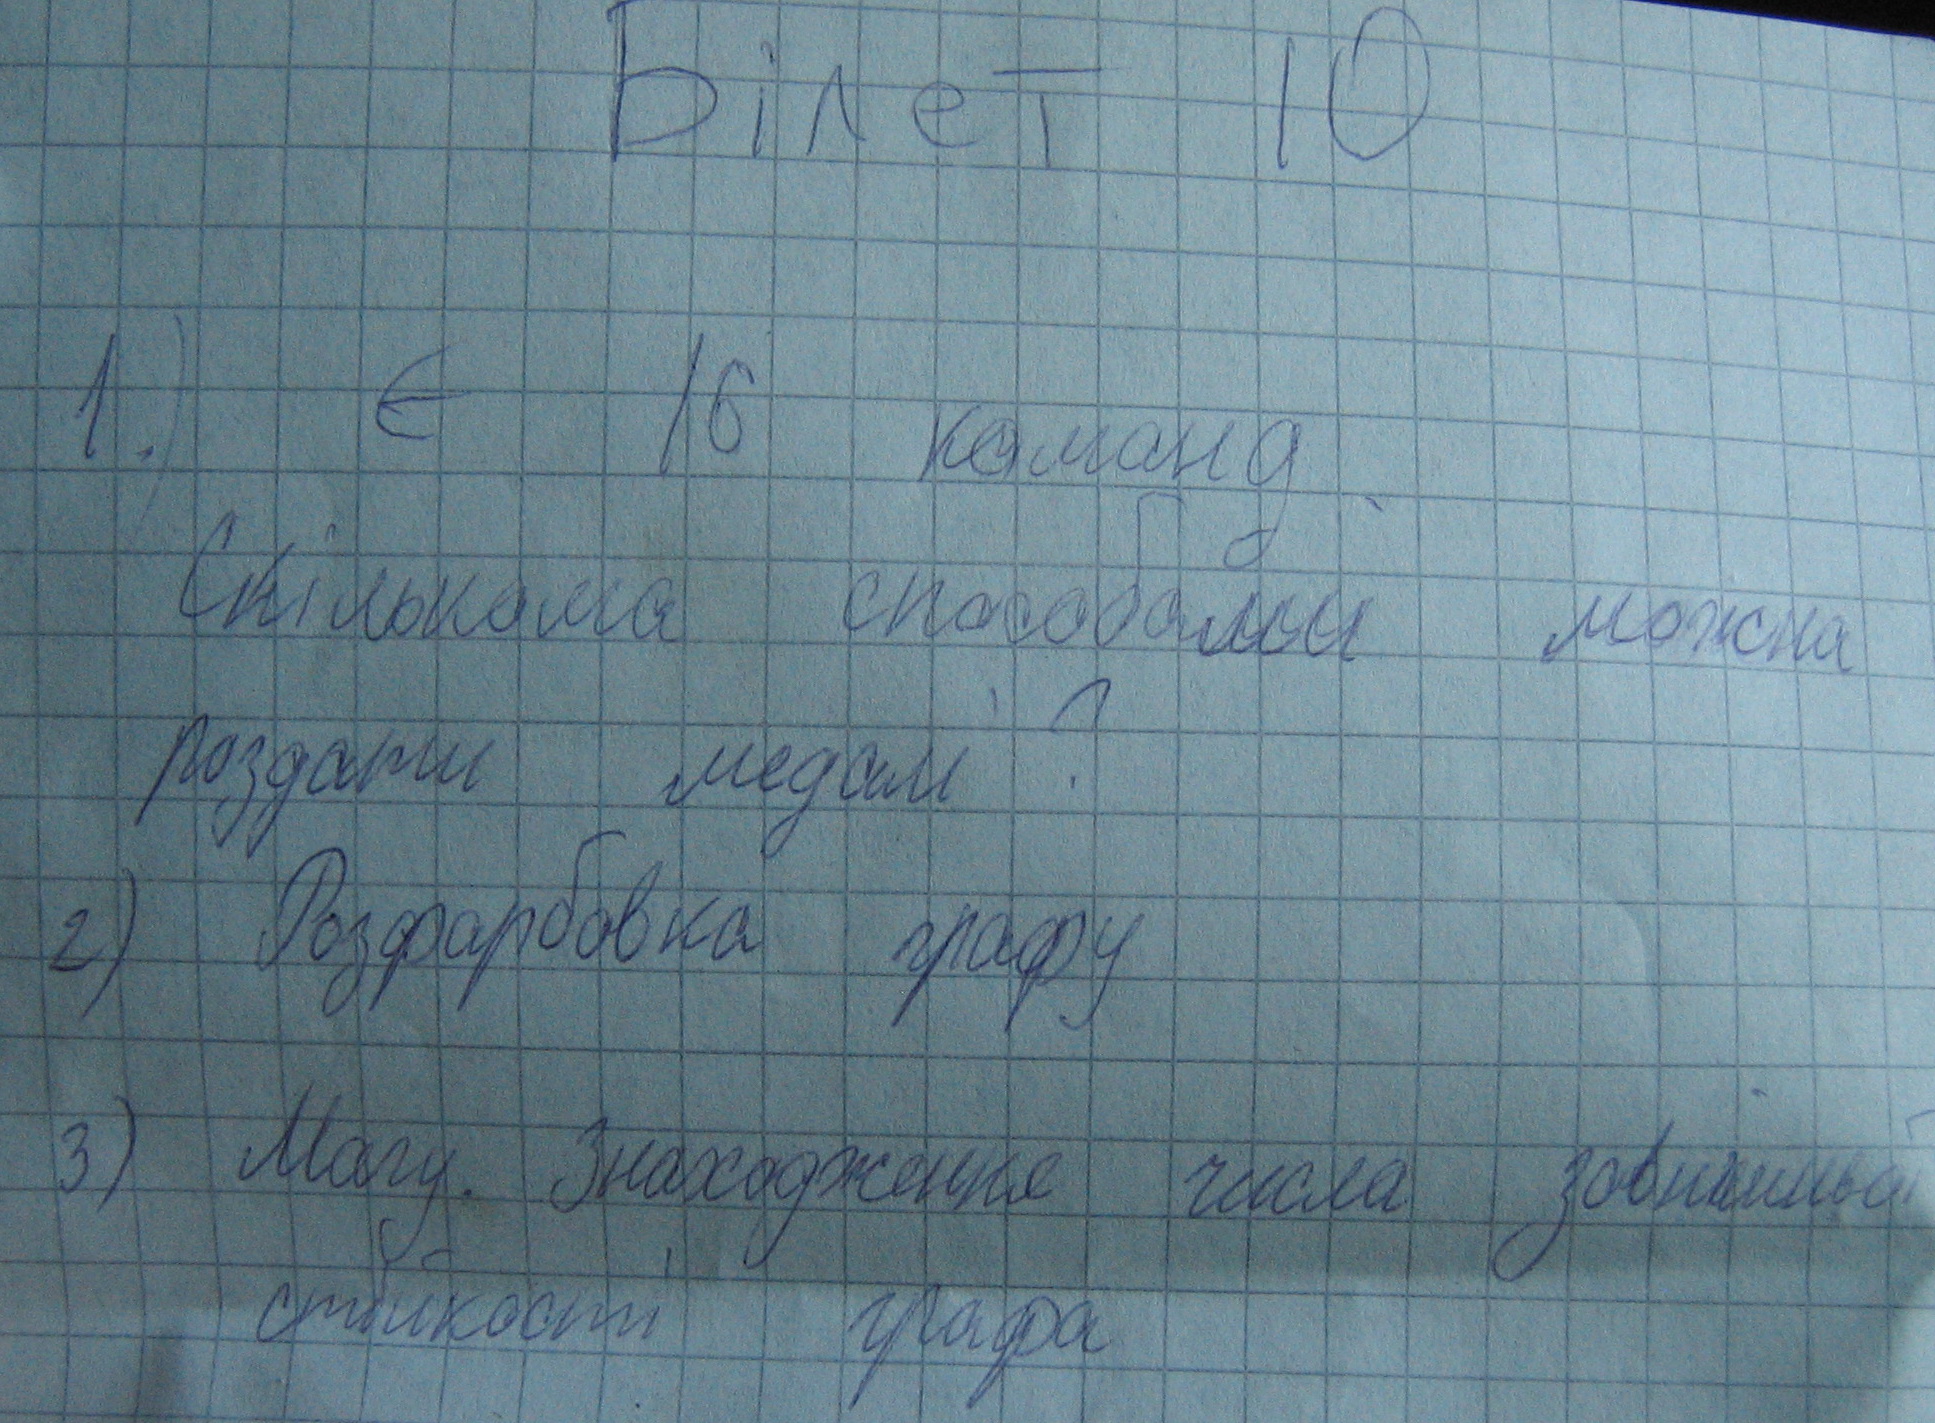 Білет 10
1.) Є 16 команд
Скількома способами можна
роздати медалі?
2) Розфарбовка графу
3) Магу. Знаходження числа зовнішньої
стійкості графа